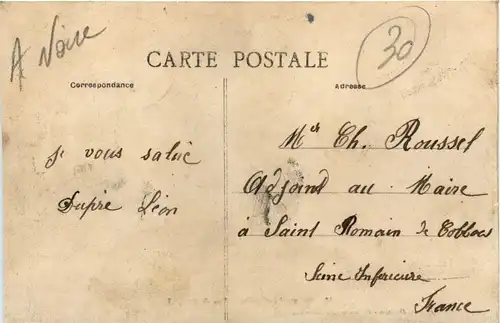 A Voire
30
CARTE POSTALE
Correspondance
Adresse
Je vous salue
Dupré Léon
Mr Ch. Roussel
Adjoint au Maire
à Saint Romain de Colbosc
Seine Inferieure
France